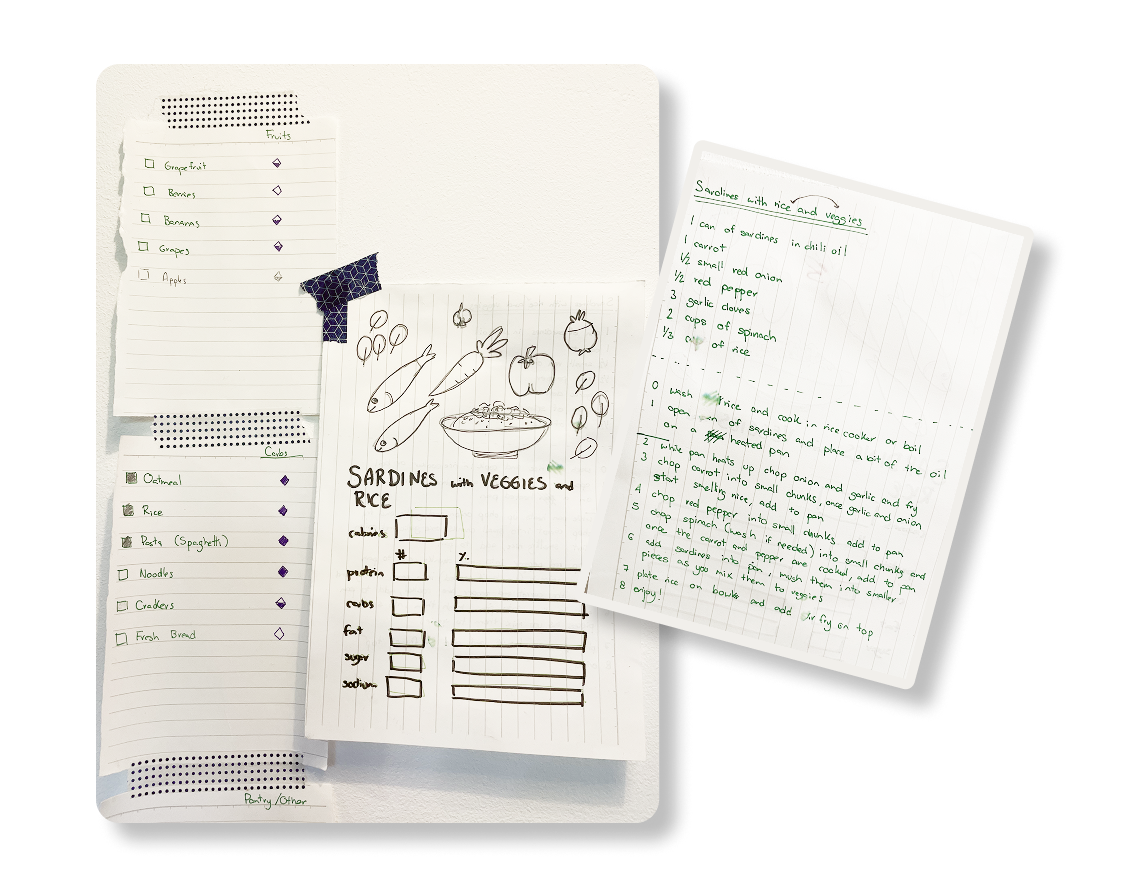 Fruits
Grapefruit
Berries
Bananas
Grapes
Apples
Carbs
Oatmeal
Rice
Pasta (Spaghetti)
Noodles
Crackers
Fresh Bread
Pantry/Other
SARDINES with VEGGIES and
RICE
calories
# %
protein
carbs
fat
sugar
sodium
Sardines with rice and veggies
1 can of sardines in chili oil
1 carrot
1/2 small red onion
1/2 red pepper
3 garlic cloves
2 cups of spinach
1/3 cup of rice
0 wash rice and cook in rice cooker or boil
1 open can of sardines and place a bit of the oil
on a heated pan
2 while pan heats up chop onion and garlic and fry
3 chop carrot into small chunks, once garlic and onion
start smelling nice, add to pan
4 chop red pepper into small chunks add to pan
5 chop spinach (wash if needed) into small chunks and
once the carrot and pepper are cooked, add to pan
6 add sardines into pan, mush them into smaller
pieces as you mix them to veggies
7 plate rice on bowls and add stir fry on top
8 enjoy!